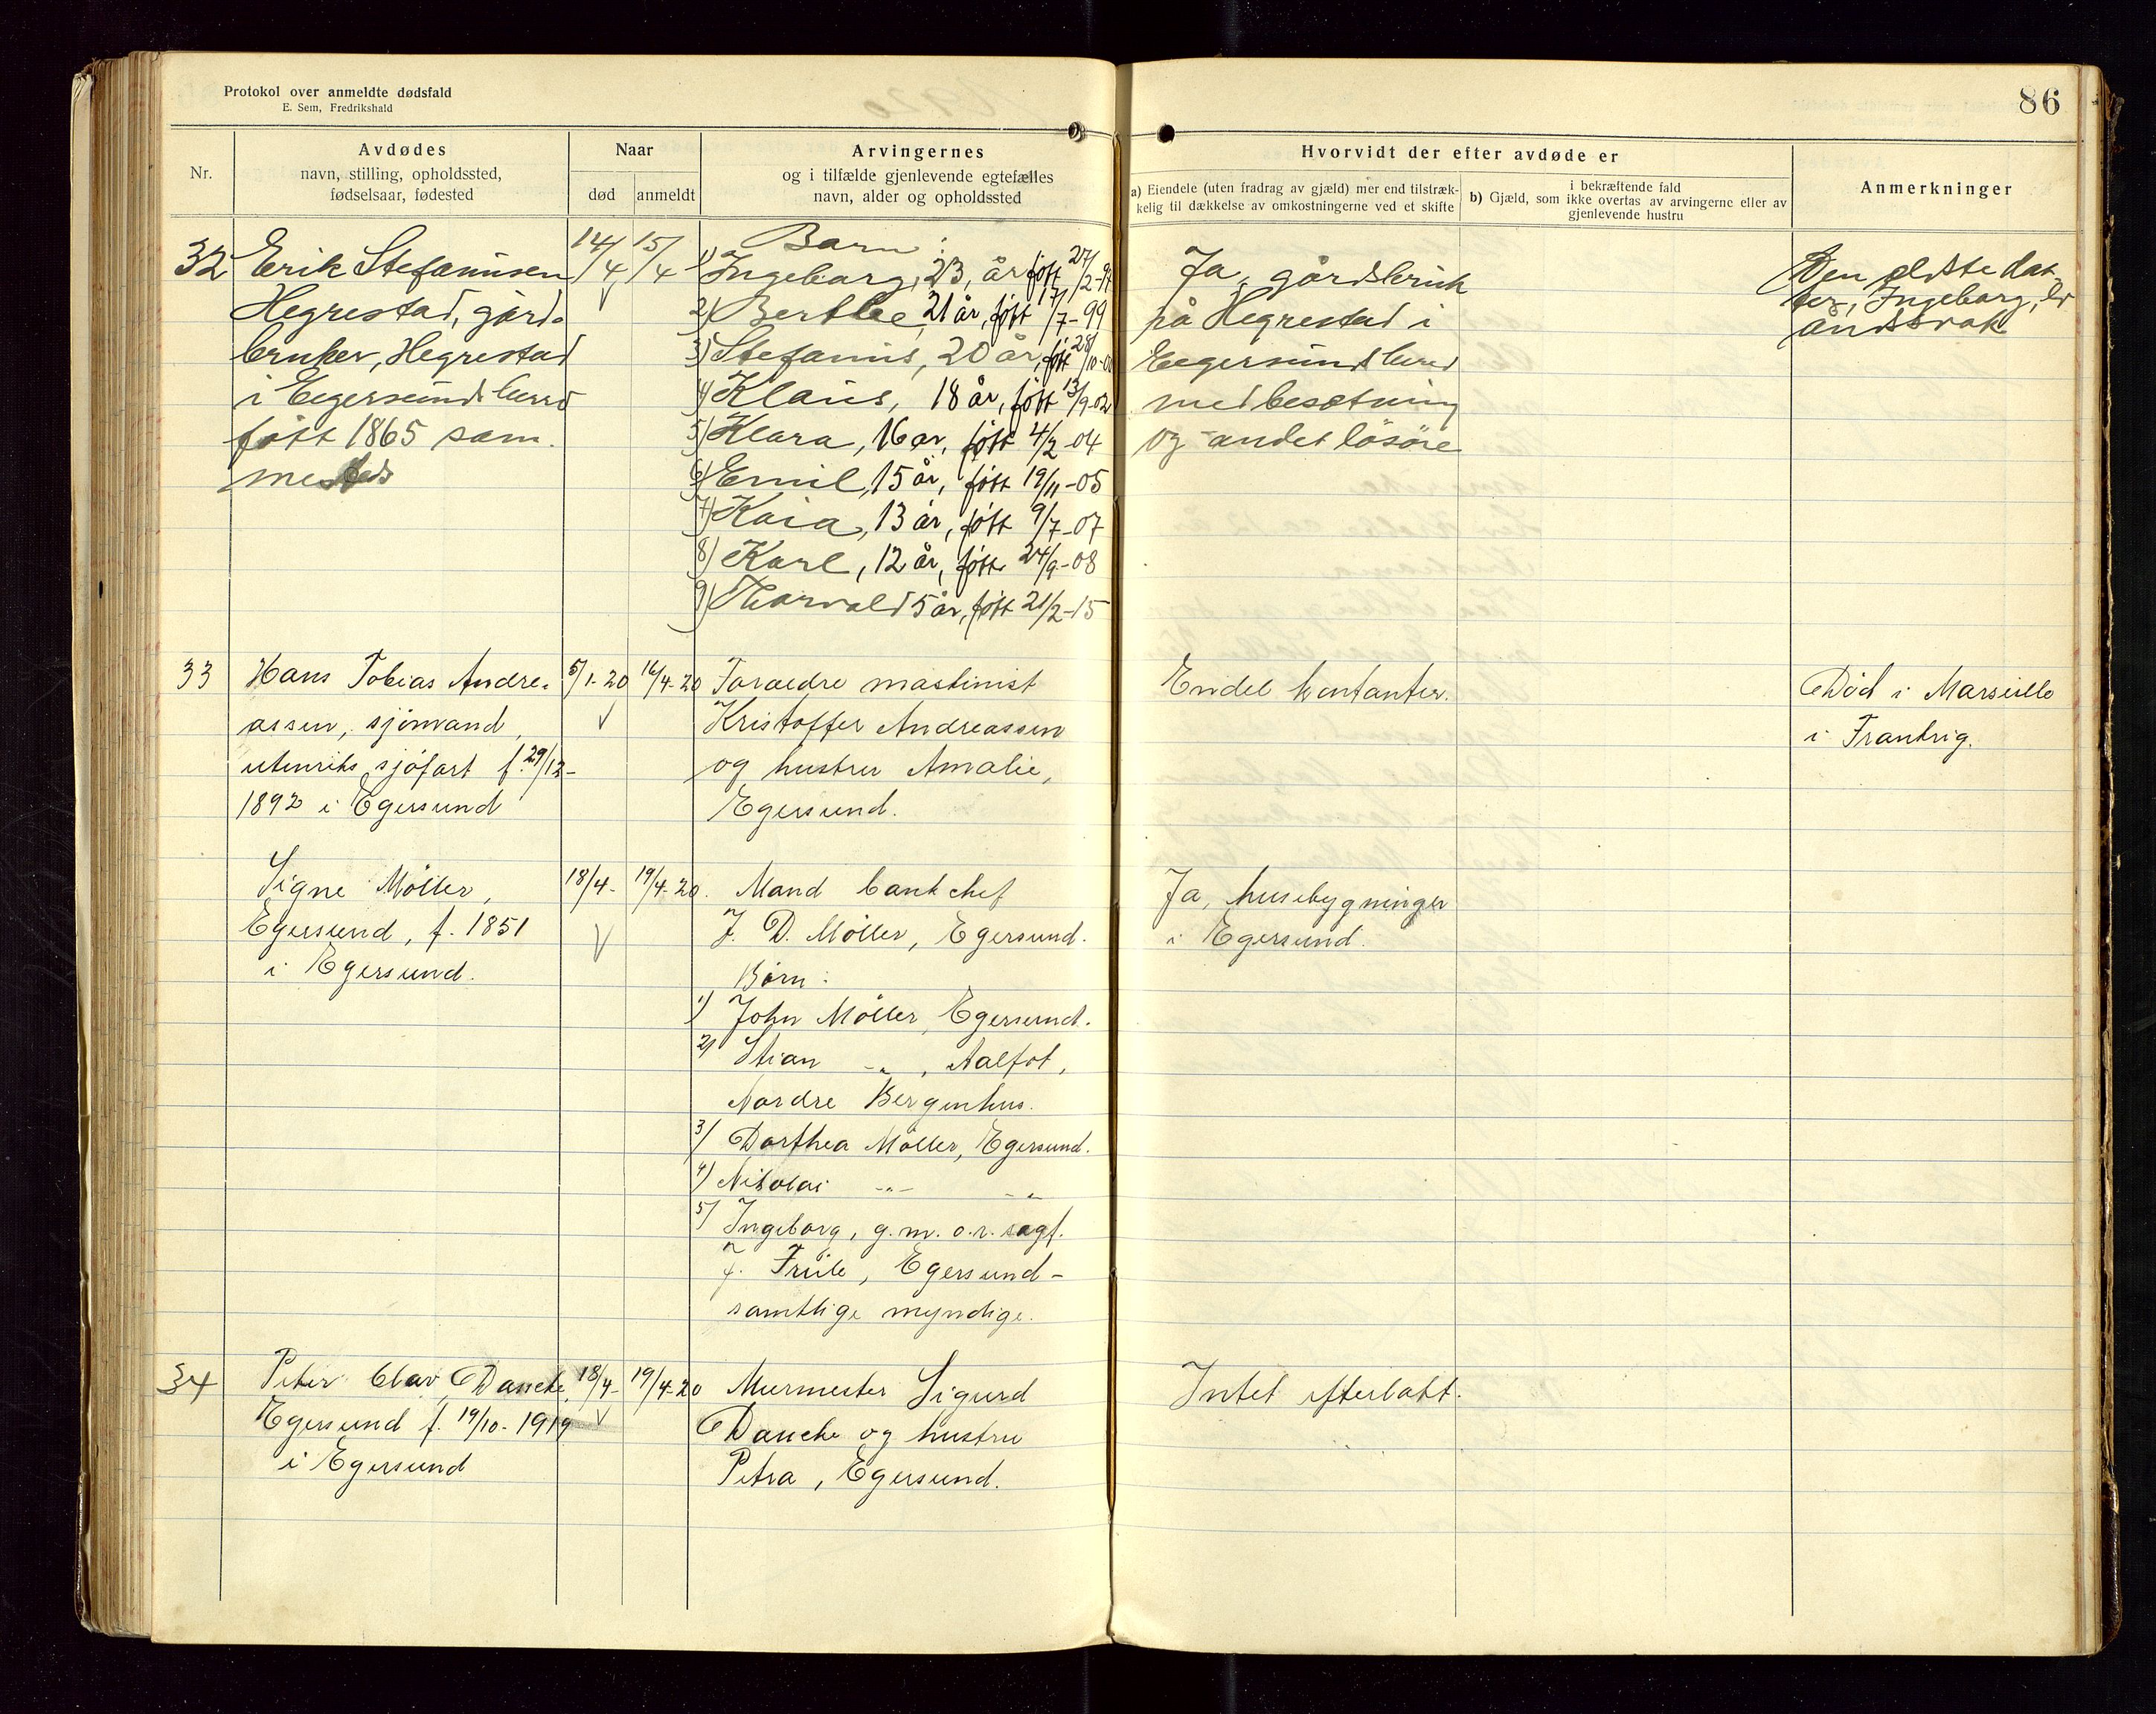 Protokol over anmeldte dødsfald
E. Sem, Fredrikshald
1920
86
Nr.
Avdødes
navn, stilling, opholdssted,
fødselsaar, fødested
Naar
død
anmeldt
Arvingernes
og i tilfælde gjenlevende egtefælles
navn, alder og opholdssted
Hvorvidt der efter avdøde er
a) Eiendele (uten fradrag av gjæld) mer end tilstræk-
kelig til dækkelse av omkostningerne ved et skifte
i bekræftende fald
b) Gjæld, som ikke overtas av arvingerne eller av
gjenlevende hustru
Anmerkninger
32
Erik Stefanusen
Hegrestad, gård-
bruker, Hegrestad
i Egersund herred
født 1865 sam-
mesteds
14/4
15/4
Barn:
1) Ingeborg, 23, år født 27/2-97
2) Berthe, 21 år, født 17/7-99
3) Stefanus, 20 år, født 28/10-00
4) Klaus, 18 år, født 13/9-02
5) Klara, 16 år, født 4/2-04
6) Emil, 15 år, født 19/11-05
7) Kaia, 13 år, født 9/7-07
8) Karl, 12 år, født 24/9-08
9) Thorvald 5 år, født 21/2-15
Ja, gårdsbruk
på Hegrestad i
Eegersund herred
med besetning
og andet løsøre
Den eldste dat-
ter, Ingeborg, er
åndssvak
33
Hans Tobias Andre-
assen, sjømand,
utenriks sjøfart f. 29/12-
1892 i Egersund
5/1-20
16/4-20
Foraedre maskinist
Kristoffer Andreassen
og hustru Amalie,
Egersund.
Endel kontanter.
Død i Marseille
i Frankrig.
Signe Möller,
Egersund, f. 1851
i Egersund.
18/4-
19/4-20.
Mand bankchef
J. D. Möller, Egersund.
Børn:
1) John Möller, Egersund.
2) Stian -"-, Aalfot,
Nordre Bergenhus.
3) Dorthea Möller, Egersund.
4) Nikolai -"- -"-
5) Ingeborg, g.m. o.r. sagf.
J. Friile, Egersund -
samtlige myndige.
Ja, husebygninger
i Egersund.
34
Peter Olav Danche,
Egersund f. 19/10-1919
i Egersund
18/4-
19/4-20
Murmester Sigurd
Danche og hustru
Petra, Egersund.
Intet efterlatt.